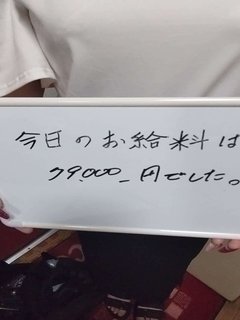 今日のお給料は
79.000_円でした。